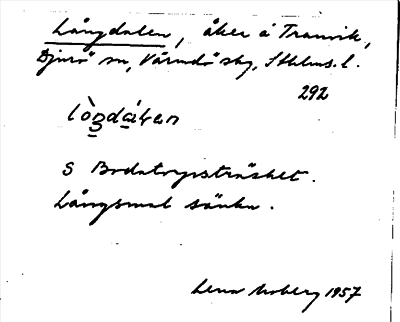 Långdalen, åker å Tranvik,
Djurö sn, Värmdö skg, Sthlms. l.
292
S Bodatorpsträsket.
Långsmal sänka.
Lena Moberg 1957